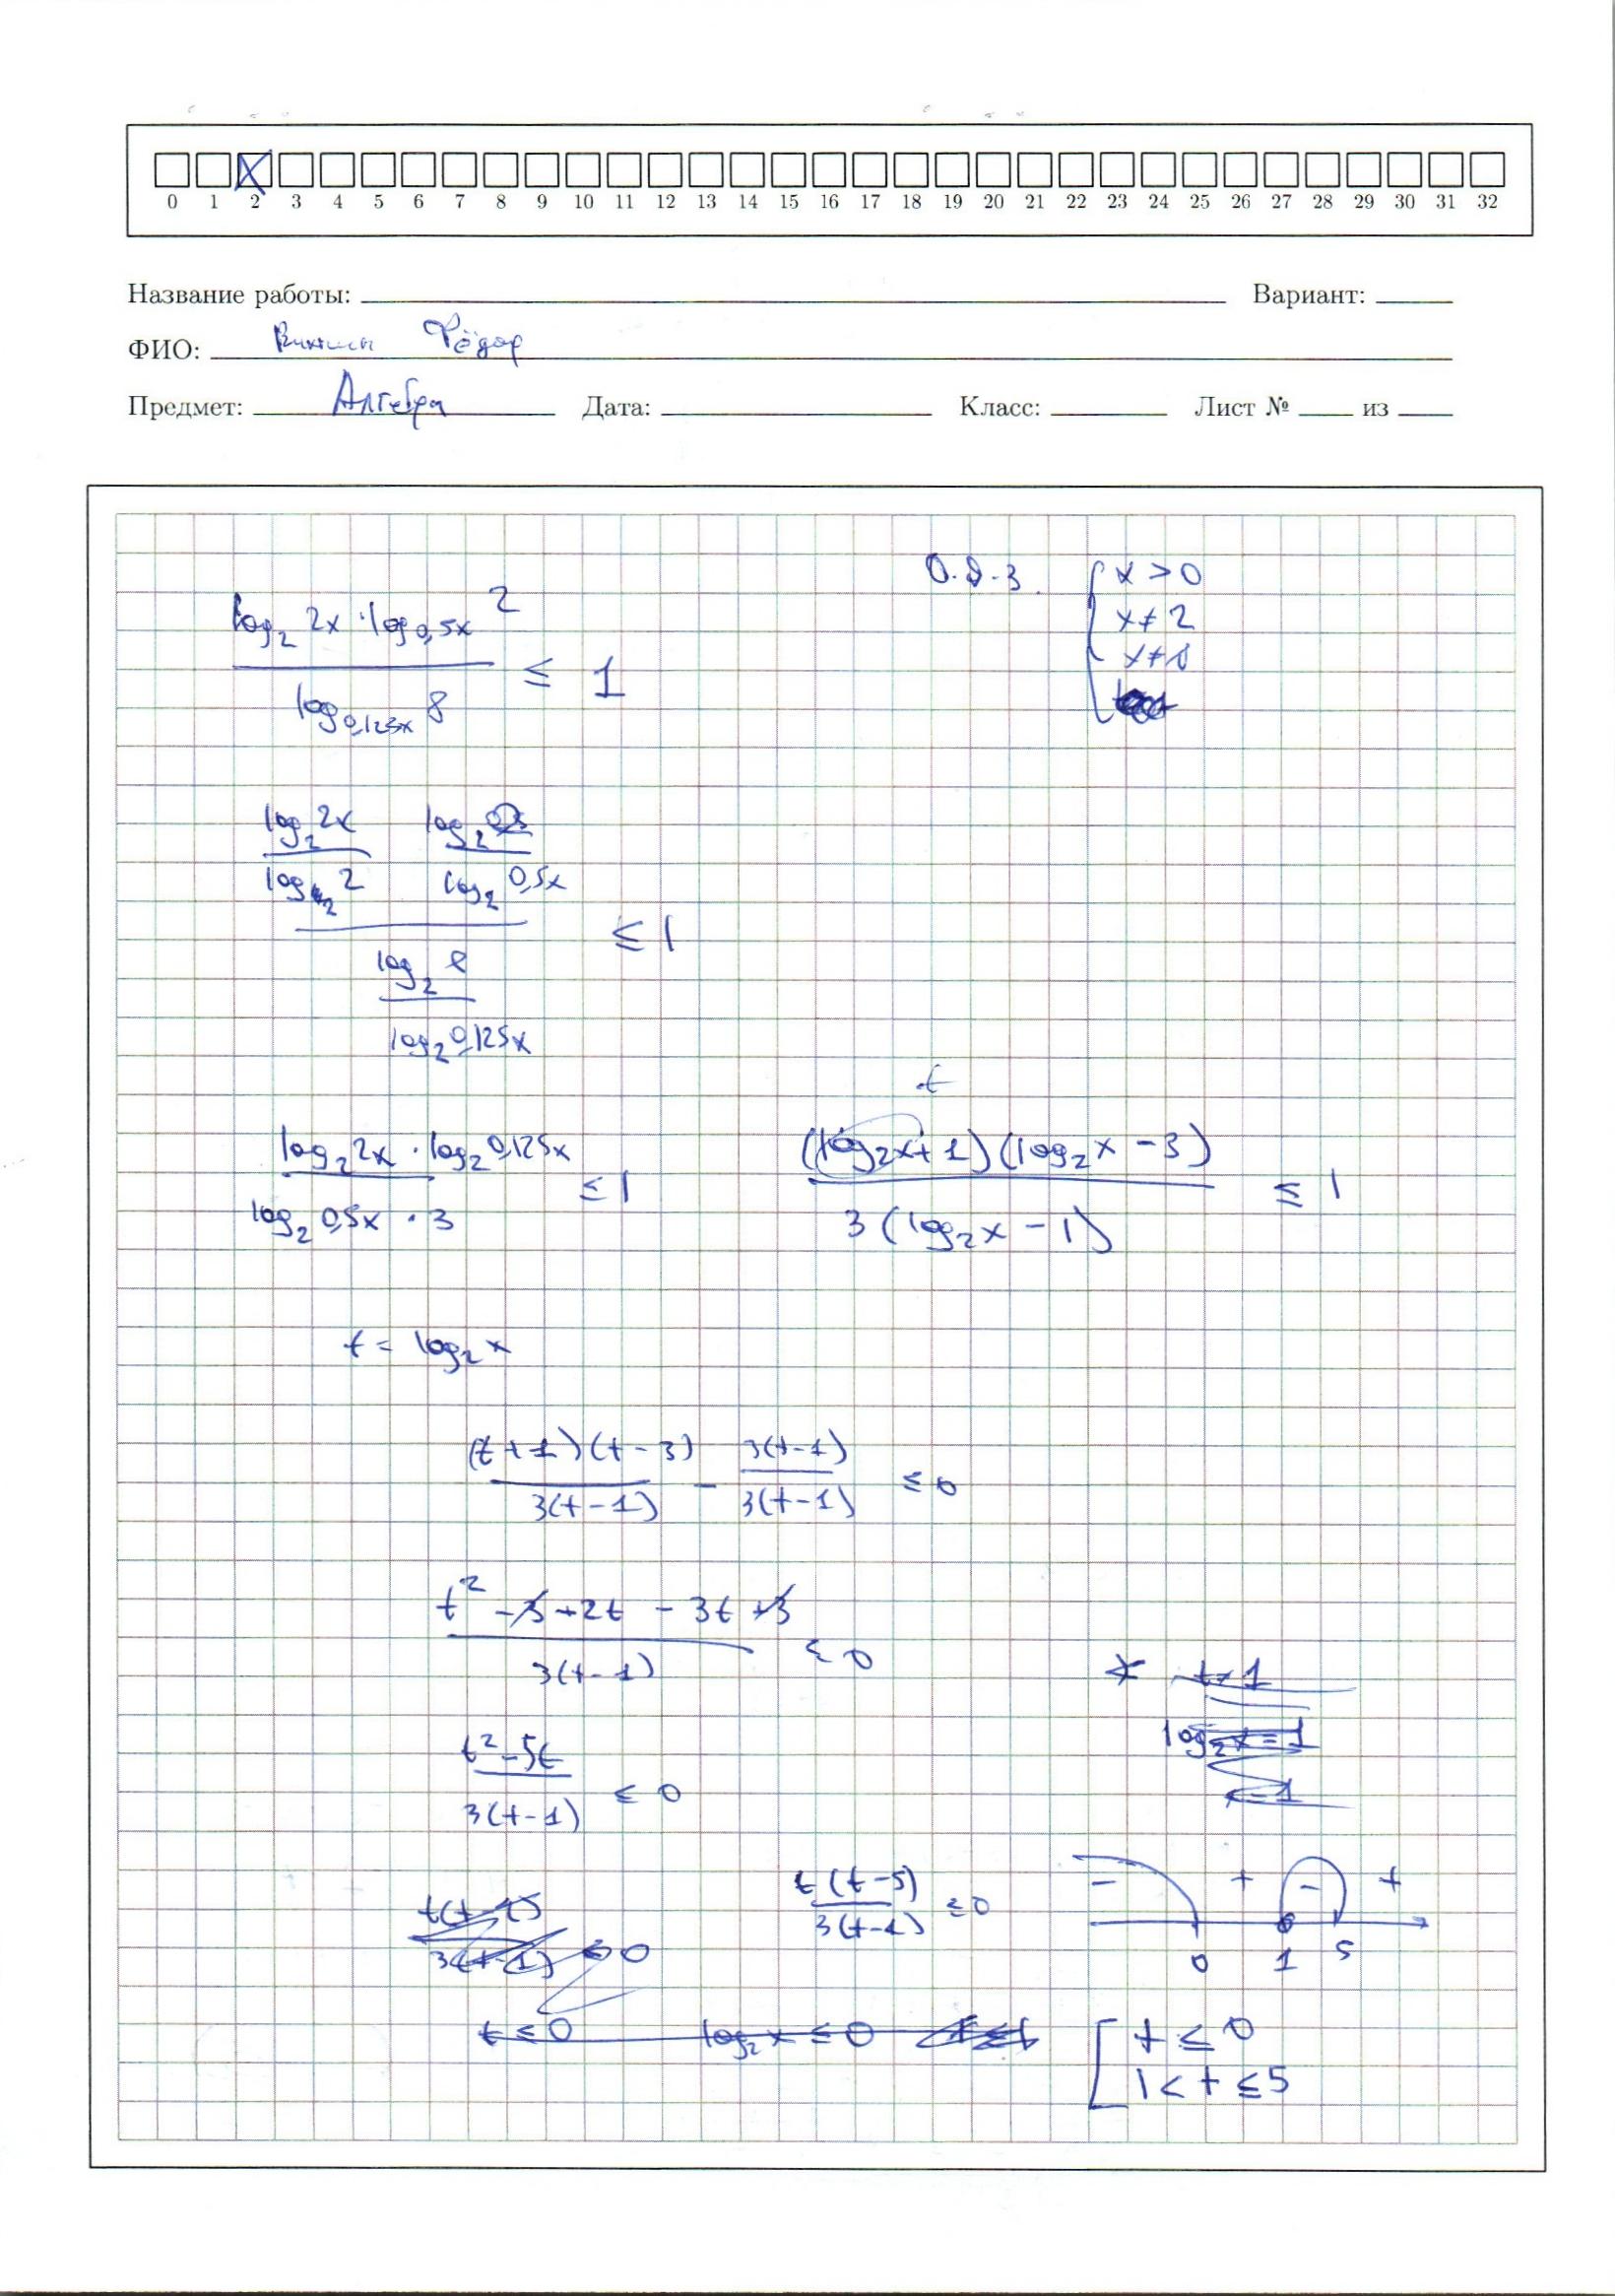 0 1 2 3 4 5 6 7 8 9 10 11 12 13 14 15 16 17 18 19 20 21 22 23 24 25 26 27 28 29 30 31 32
Название работы: Вариант:
ФИО: Фёдор
Предмет: Алгебра Дата: Класс: Лист № из
О.Д.З. x > 0
x ≠ 2
x ≠ 8
log₂ 2x · log₀,₅ₓ 2
log₀,₁₂₅ₓ 8
≤ 1
log₂ 2x log₂ 2
log₂ 2 log₂ 0,5x
≤ 1
log₂ 8
log₂ 0,125x
t
log₂ 2x · log₂ 0,125x
log₂ 0,5x · 3
≤ 1
(log₂x + 1)(log₂x − 3)
3(log₂x − 1)
≤ 1
t = log₂ x
(t + 1)(t − 3) − 3(t − 1) ≤ 0
3(t − 1) 3(t − 1)
t² − 3 + 2t − 3t + 3
3(t − 1)
≤ 0
* t = 1
log₂x = 1
t² − 5t
3(t − 1)
≤ 0
t(t − 5)
3(t − 1)
≤ 0
− + − +
0 1 5
t ≤ 0 log₂ x ≤ 0
t ≤ 0
1 < t ≤ 5